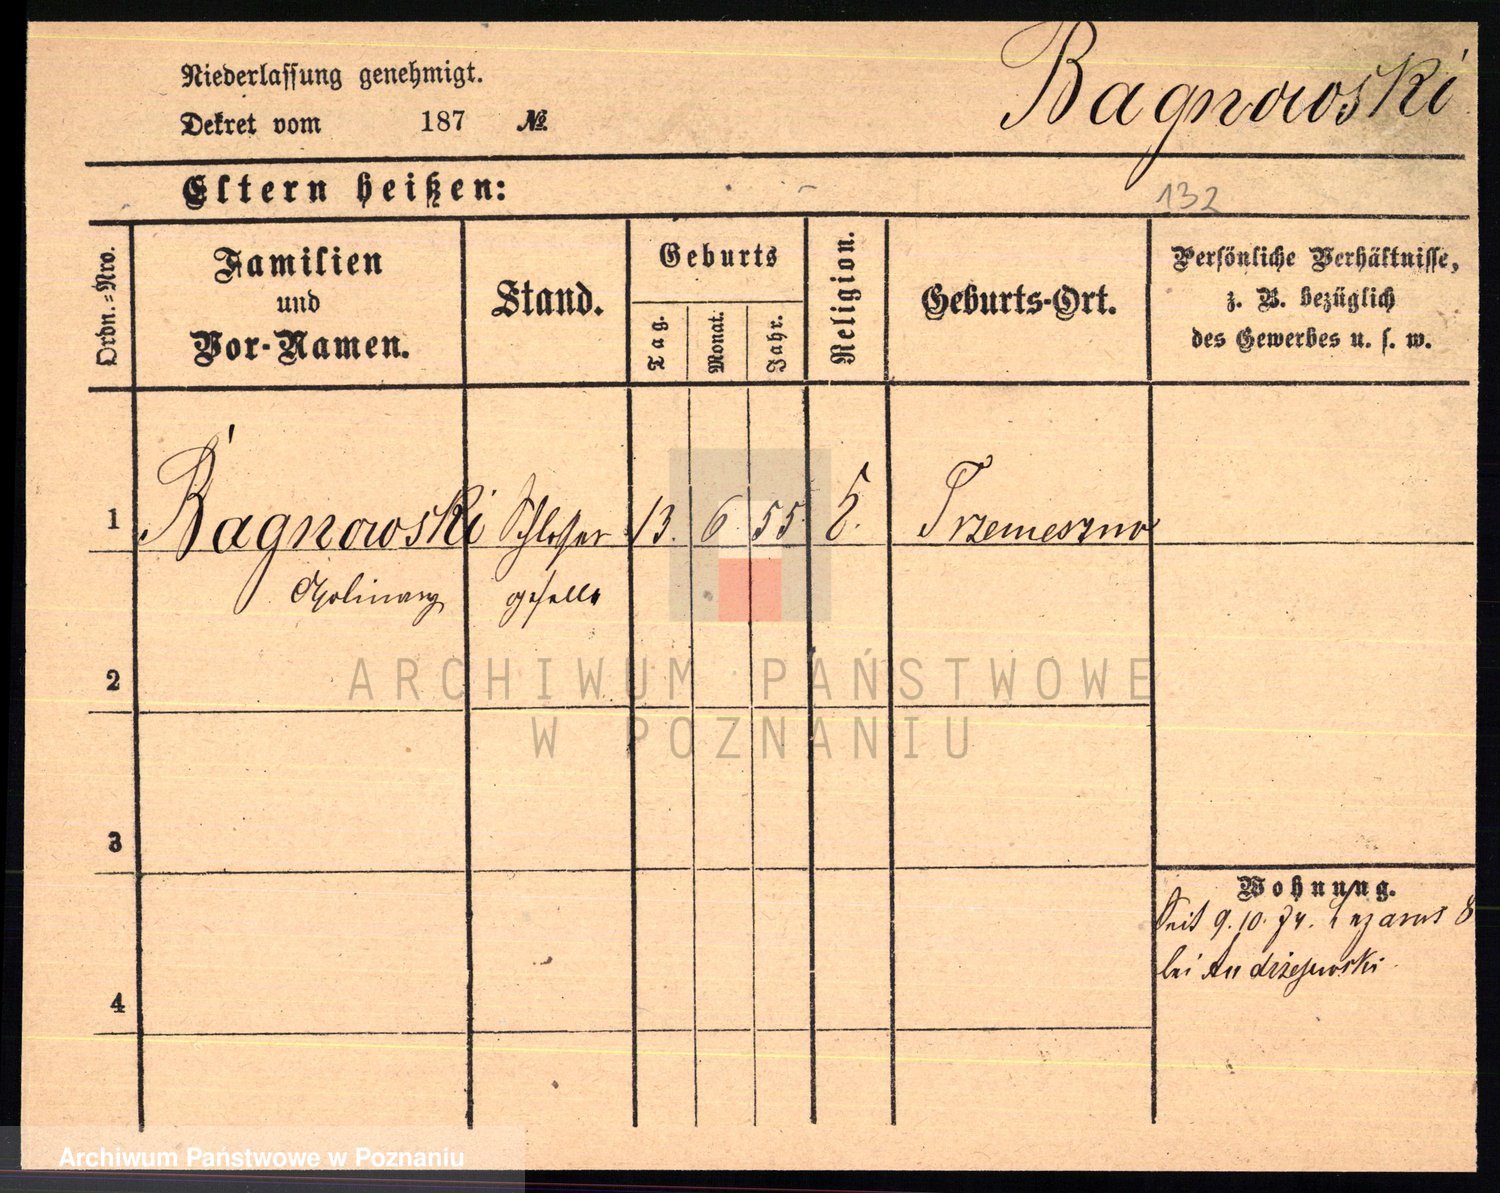 Niederlassung genehmigt.
Dekret vom 187 №
Bagnowski
Eltern heißen:
132
Ordn.=Nro.
Familien
und
Vor-Namen.
Stand.
Geburts
Tag.
Monat.
Jahr.
Religion.
Geburts-Ort.
Persönliche Verhältnisse,
z. B. bezüglich
des Gewerbes u. s. w.
1 Bagnowski Schlosser 13. 6. 55. Trzemeszno
Apolinary geselle
2
ARCHIWUM PAŃSTWOWE
W POZNANIU
3
Wohnung.
Seit 9.10.74. Lazarus 8
bei Andrzejewski
4
Archiwum Państwowe w Poznaniu